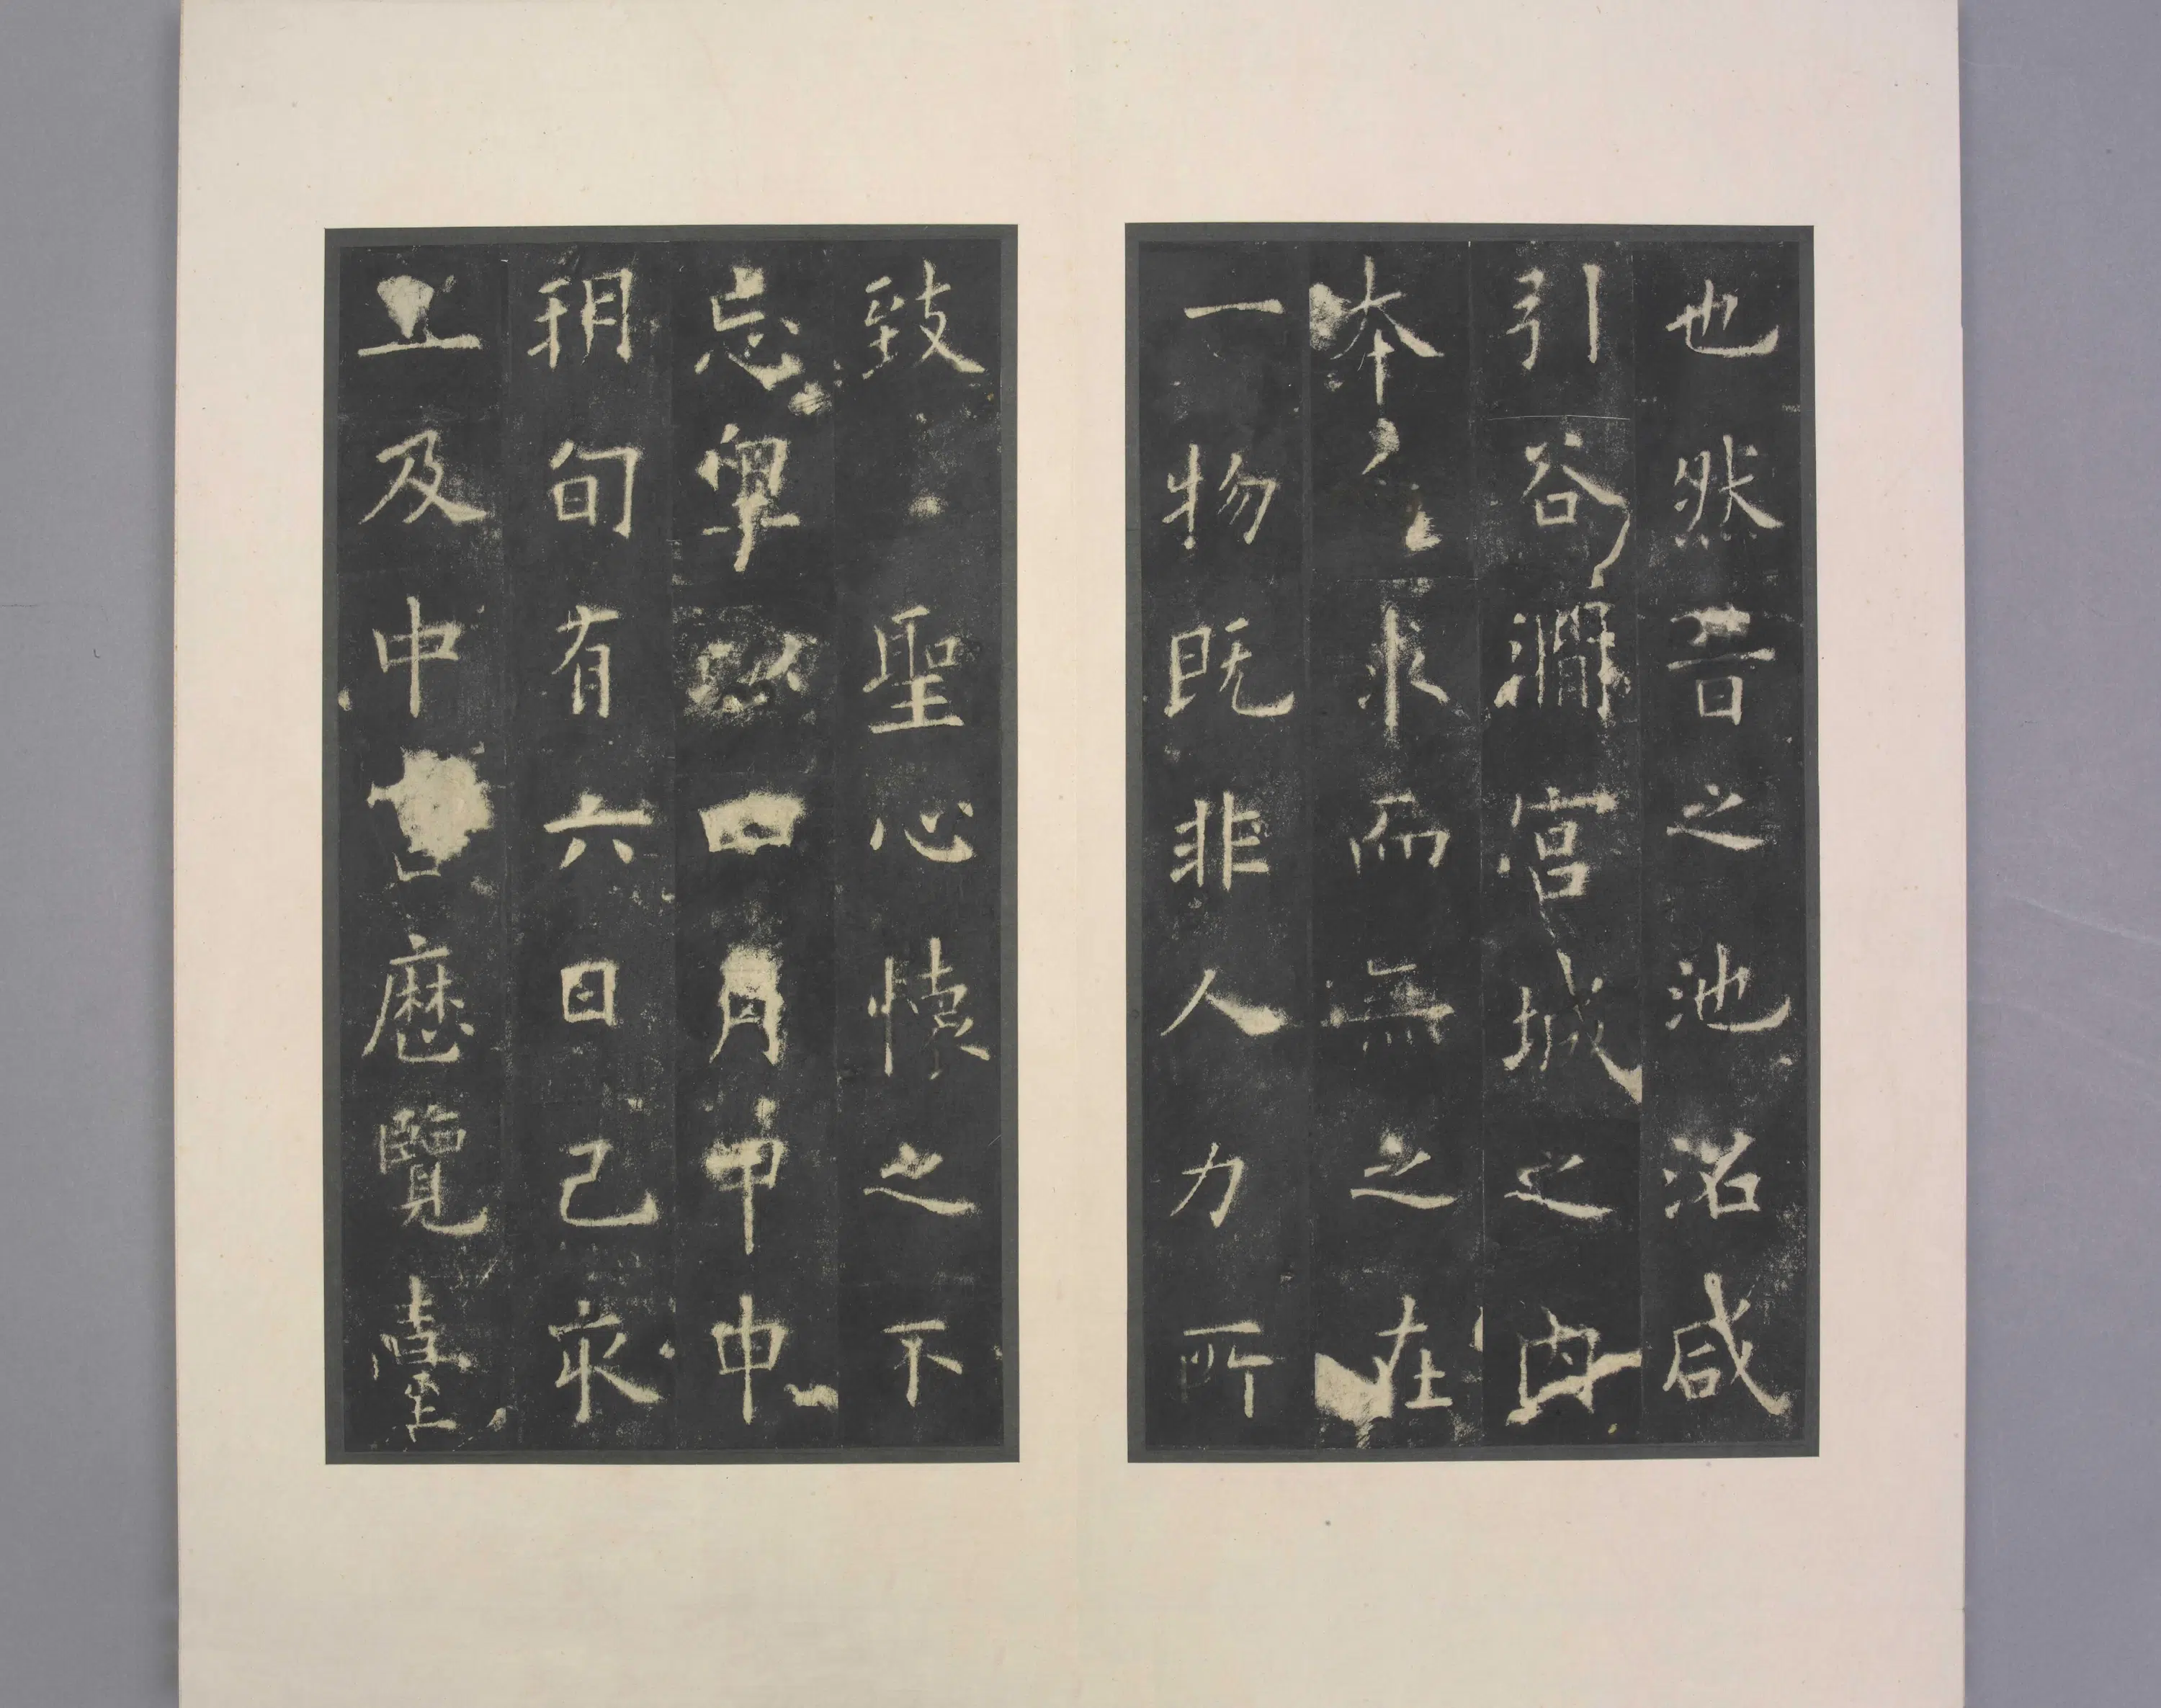 也然昔之池沼咸
引谷澗宮城之內
本求而無之在
一物既非人力所
致聖心懷之不
忘粵以四月甲申
朔旬有六日己亥
上及中宮歷覽臺